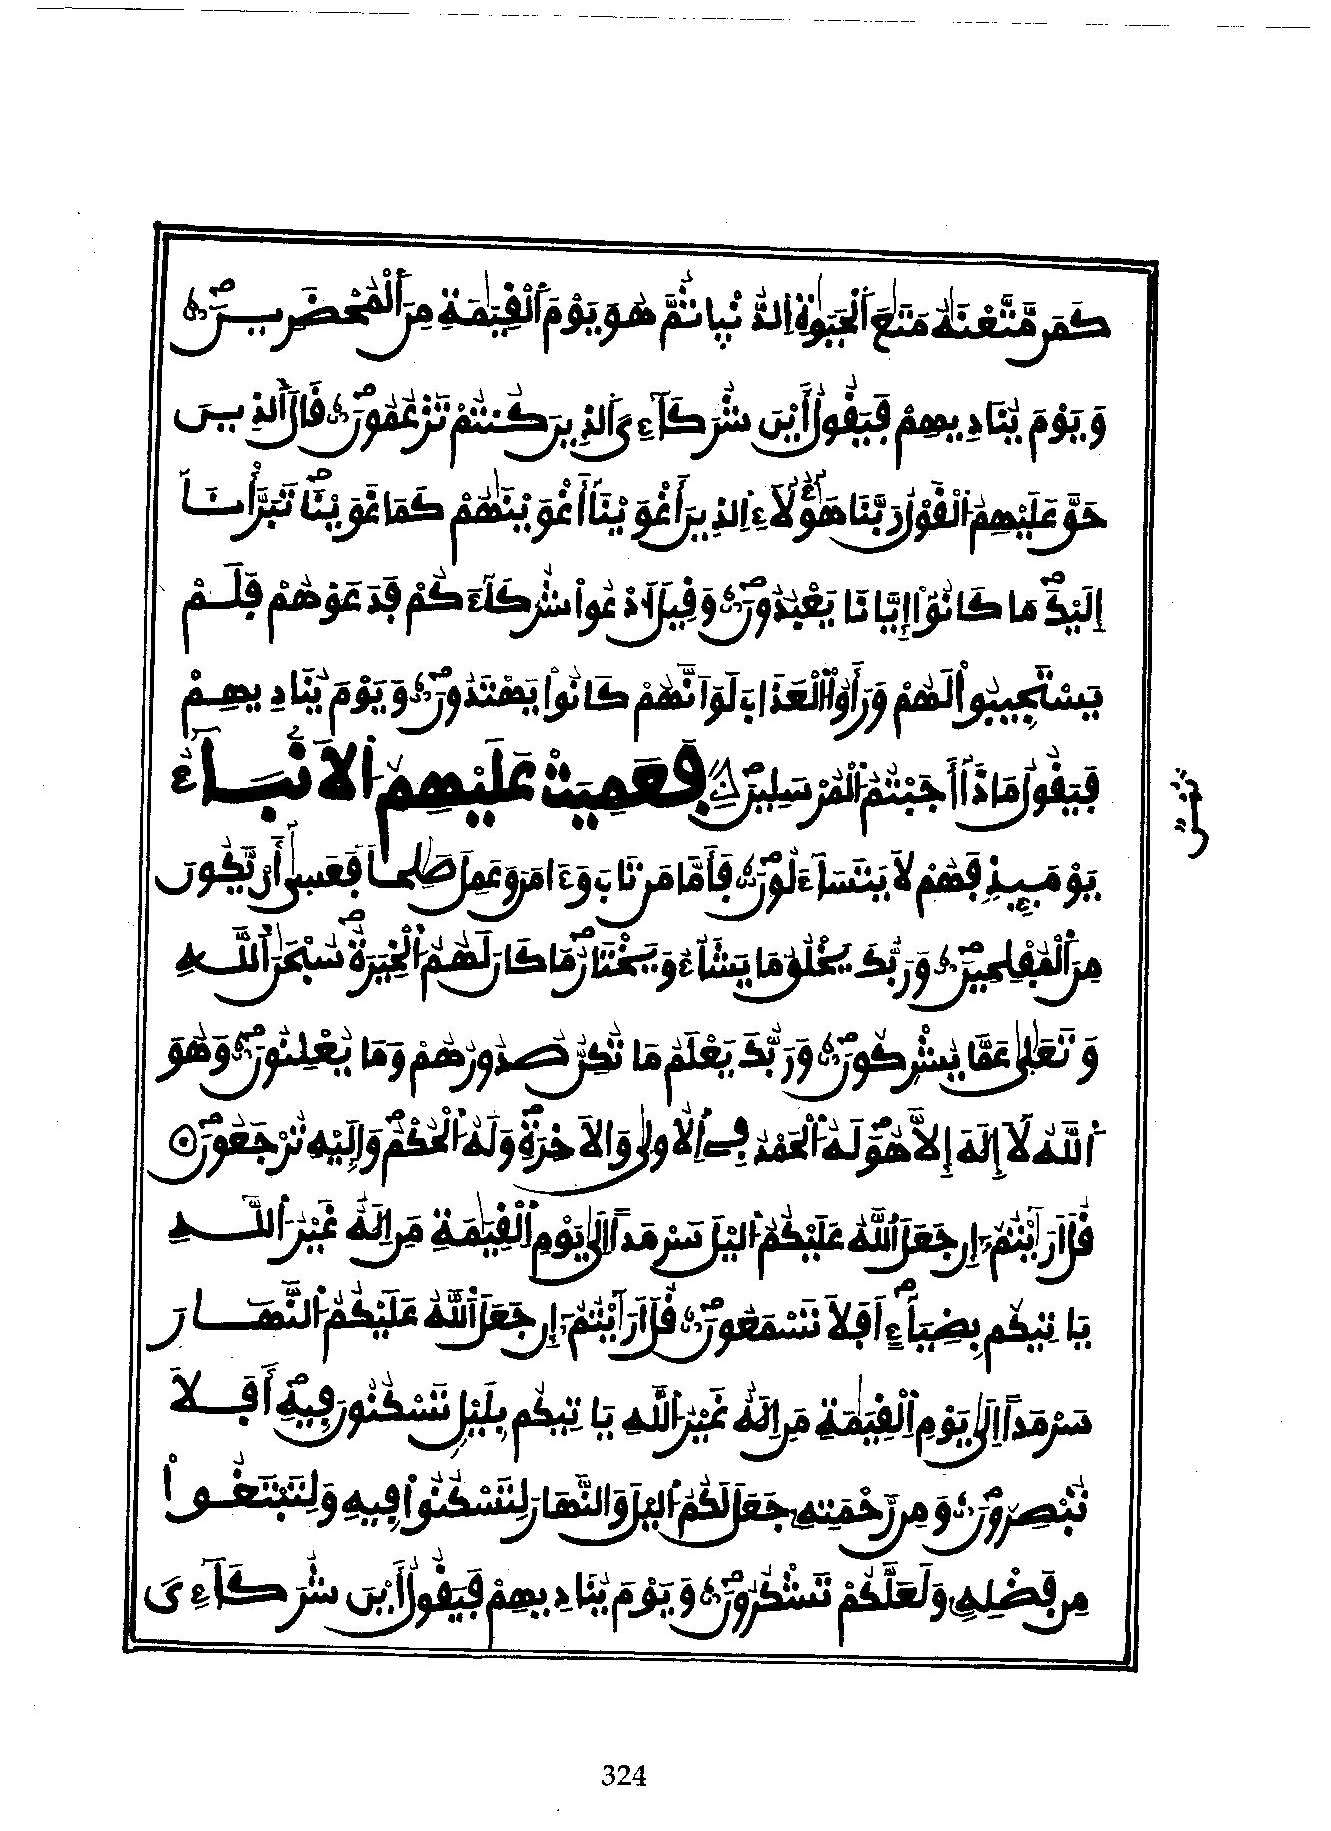 كَمَن مَّتَّعْنَٰهُ مَتَٰعَ اَ۬لْحَيَوٰةِ اِ۬لدُّنْي۪ا ثُمَّ هُوَ يَوْمَ اَ۬لْقِيَٰمَةِ مِنَ اَ۬لْمُحْضَرِينَۖ
وَيَوْمَ يُنَادِيهِمْ فَيَقُولُ أَيْنَ شُرَكَآءِيَ اَ۬لذِينَ كُنتُمْ تَزْعُمُونَۖ قَالَ اَ۬لذِينَ
حَقَّ عَلَيْهِمُ اَ۬لْقَوْلُ رَبَّنَا هَٰٓؤُلَآءِ اِ۬لذِينَ أَغْوَيْنَآ أَغْوَيْنَٰهُمْ كَمَا غَوَيْنَاۖ تَبَرَّأْنَآ
إِلَيْكَۖ مَا كَانُوٓاْ إِيَّانَا يَعْبُدُونَۖ وَقِيلَ اَ۟دْعُواْ شُرَكَآءَكُمْ فَدَعَوْهُمْ فَلَمْ
يَسْتَجِيبُواْ لَهُمْ وَرَأَوُاْ اُ۬لْعَذَابَ لَوَ اَنَّهُمْ كَانُواْ يَهْتَدُونَۖ وَيَوْمَ يُنَادِيهِمْ
فَيَقُولُ مَاذَآ أَجَبْتُمُ اُ۬لْمُرْسَلِينَۖ فَعَمِيَتْ عَلَيْهِمُ اُ۬لَانۢبَآءُ
يَوْمَئِذٖ فَهُمْ لَا يَتَسَآءَلُونَۖ فَأَمَّا مَن تَابَ وَءَامَنَ وَعَمِلَ صَٰلِحاٗ فَعَس۪ىٰٓ أَنْ يَّكُونَ
مِنَ اَ۬لْمُفْلِحِينَۖ وَرَبُّكَ يَخْلُقُ مَا يَشَآءُ وَيَخْتَارُۖ مَا كَانَ لَهُمُ اُ۬لْخِيَرَةُۖ سُبْحَٰنَ اَ۬للَّهِ
وَتَعَٰل۪ىٰ عَمَّا يُشْرِكُونَۖ وَرَبُّكَ يَعْلَمُ مَا تُكِنُّ صُدُورُهُمْ وَمَا يُعْلِنُونَۖ وَهُوَ
اَ۬للَّهُ لَآ إِلَٰهَ إِلَّا هُوَۖ لَهُ اُ۬لْحَمْدُ فِے اِ۬لُاول۪ىٰ وَالَاخِرَةِۖ وَلَهُ اُ۬لْحُكْمُۖ وَإِلَيْهِ تُرْجَعُونَۖ
قُلَ اَرَٰٓيْتُمُۥٓ إِن جَعَلَ اَ۬للَّهُ عَلَيْكُمُ اُ۬ليْلَ سَرْمَداً اِلَىٰ يَوْمِ اِ۬لْقِيَٰمَةِ مَنِ اِلَٰهٌ غَيْرُ اُ۬للَّهِ
يَاتِيكُم بِضِيَآءٍۖ اَفَلَا تَسْمَعُونَۖ قُلَ اَرَٰٓيْتُمُۥٓ إِن جَعَلَ اَ۬للَّهُ عَلَيْكُمُ اُ۬لنَّهَارَ
سَرْمَداً اِلَىٰ يَوْمِ اِ۬لْقِيَٰمَةِ مَنِ اِلَٰهٌ غَيْرُ اُ۬للَّهِ يَاتِيكُم بِلَيْلٖ تَسْكُنُونَ فِيهِۖ أَفَلَا
تُبْصِرُونَۖ وَمِن رَّحْمَتِهِۦ جَعَلَ لَكُمُ اُ۬ليْلَ وَالنَّهَارَ لِتَسْكُنُواْ فِيهِ وَلِتَبْتَغُواْ
مِن فَضْلِهِۦ وَلَعَلَّكُمْ تَشْكُرُونَۖ وَيَوْمَ يُنَادِيهِمْ فَيَقُولُ أَيْنَ شُرَكَآءِيَ
324